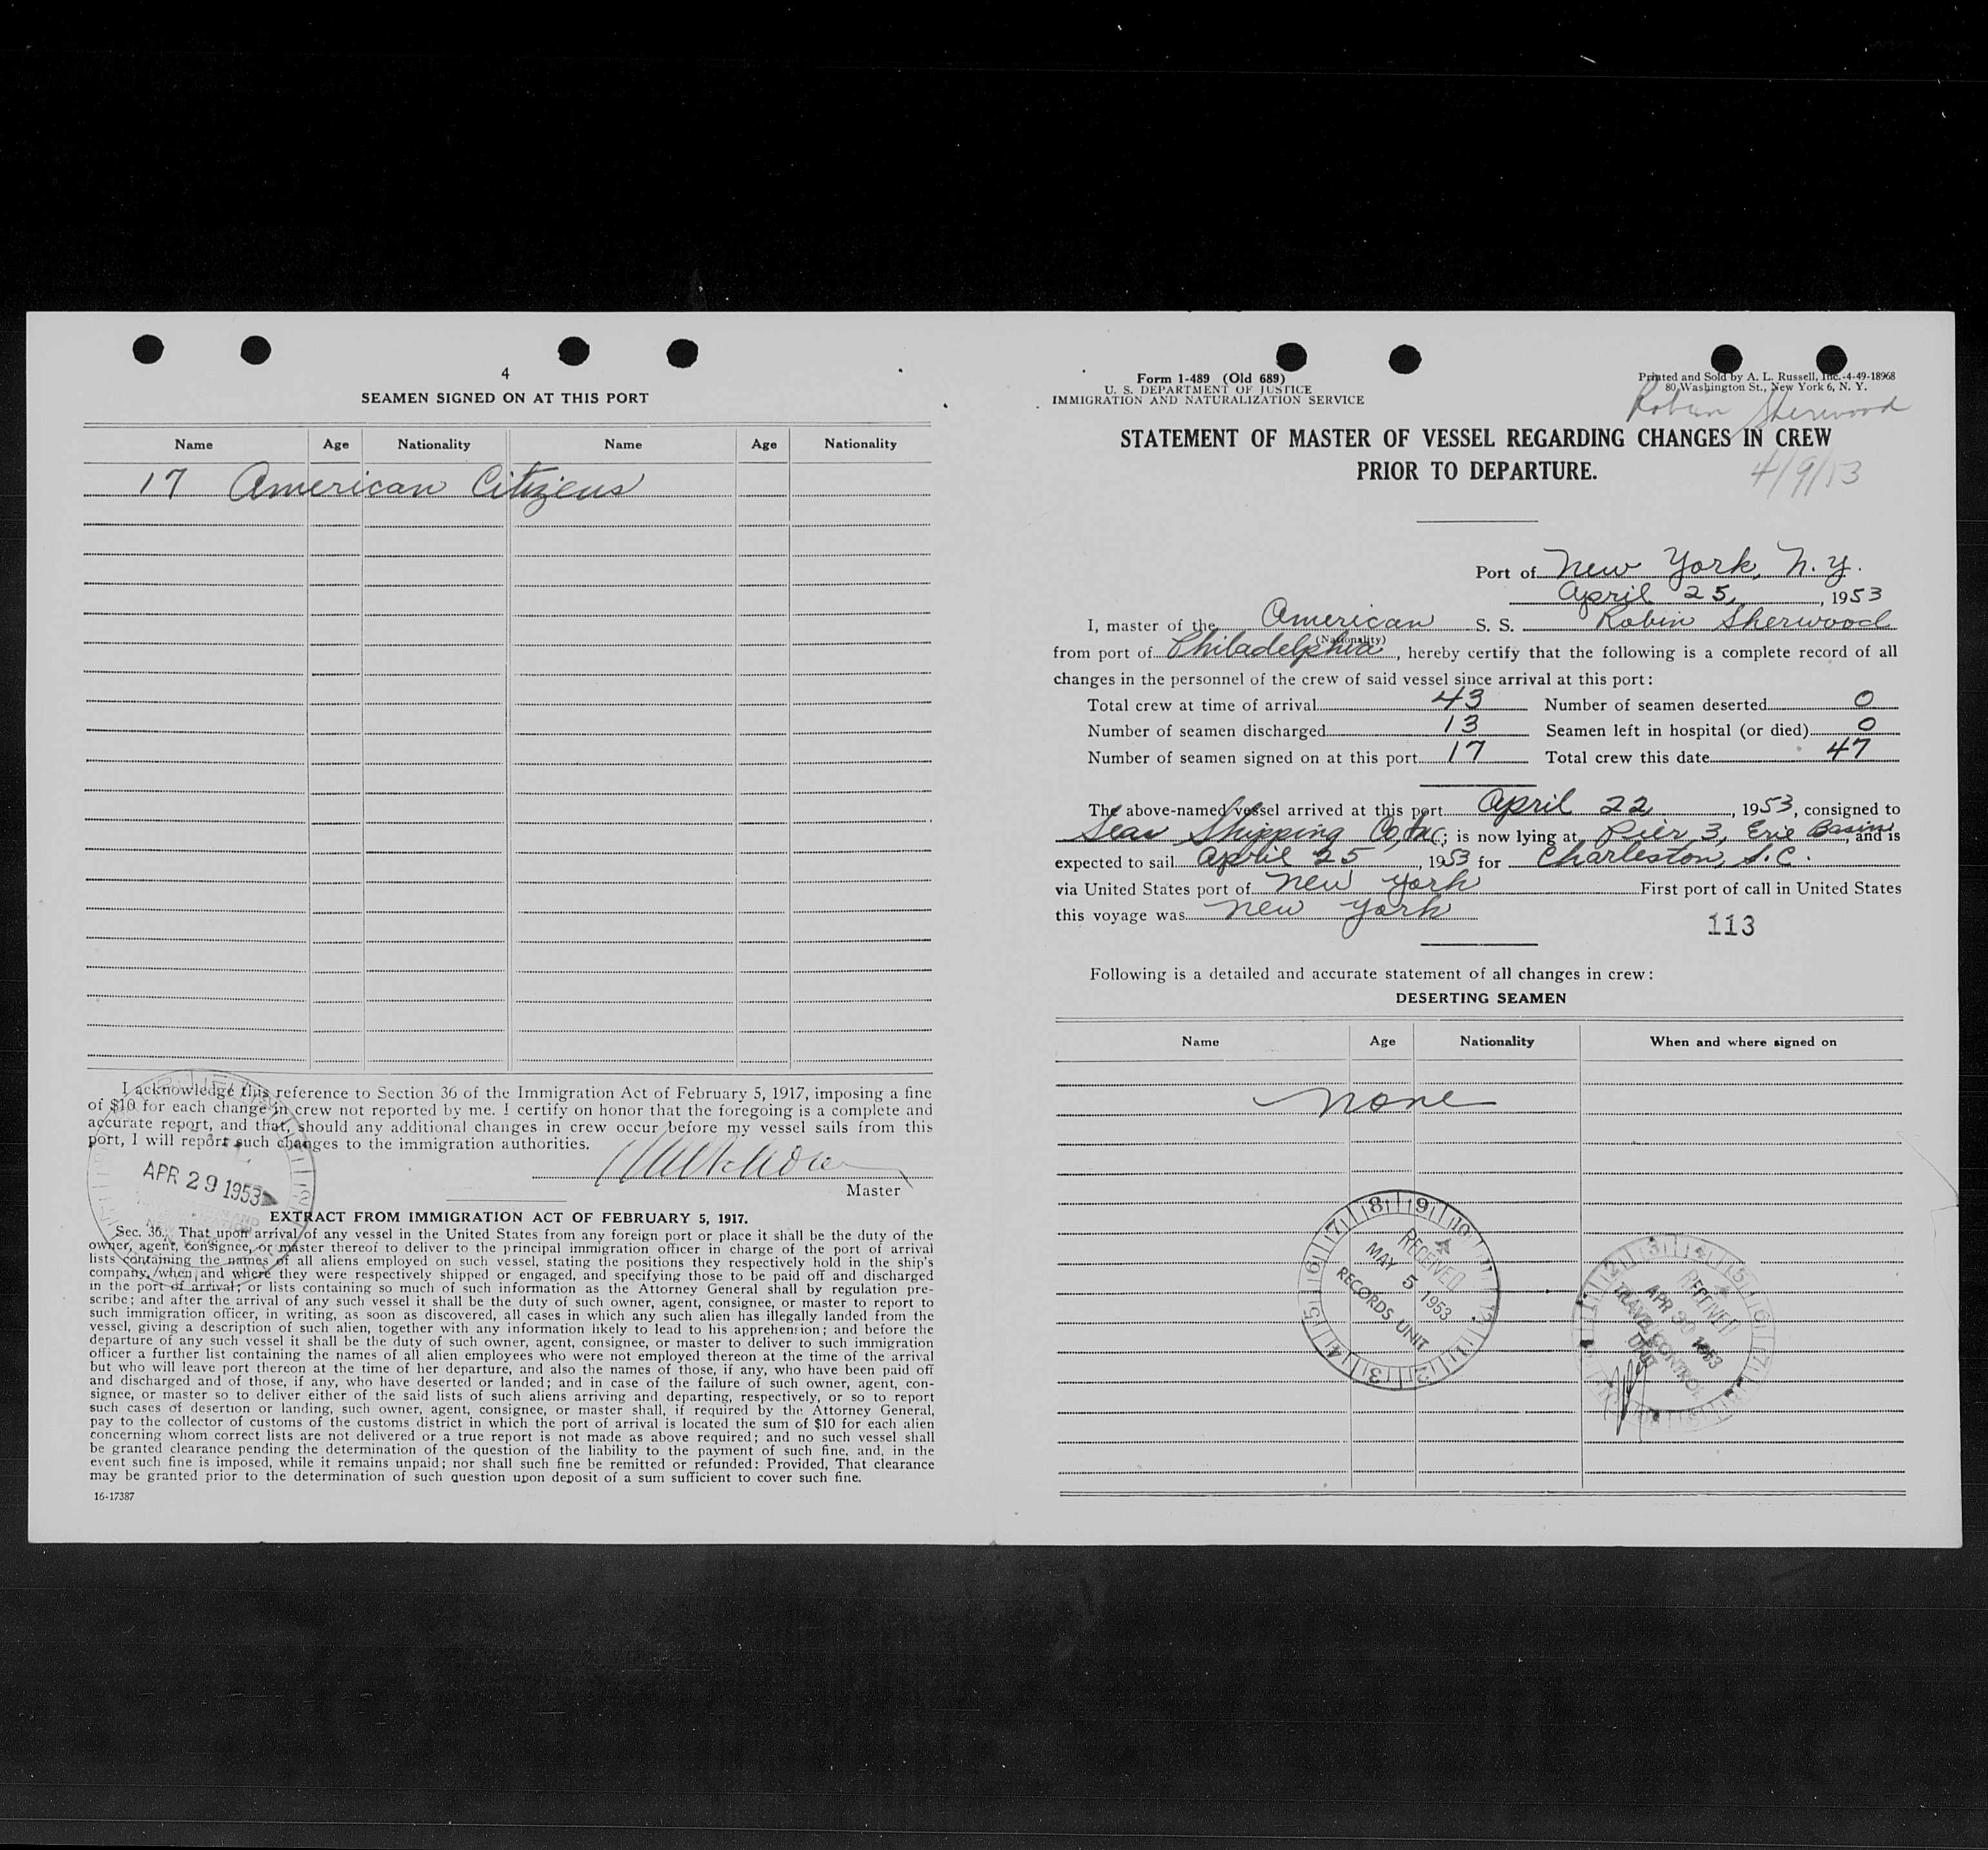 4
SEAMEN SIGNED ON AT THIS PORT
Name Age Nationality Name Age Nationality
17 American Citizens
I acknowledge this reference to Section 36 of the Immigration Act of February 5, 1917, imposing a fine
of $10 for each change in crew not reported by me. I certify on honor that the foregoing is a complete and
accurate report, and that, should any additional changes in crew occur before my vessel sails from this
port, I will report such changes to the immigration authorities.
Master
APR 29 1953
EXTRACT FROM IMMIGRATION ACT OF FEBRUARY 5, 1917.
Sec. 36. That upon arrival of any vessel in the United States from any foreign port or place it shall be the duty of the
owner, agent, consignee, or master thereof to deliver to the principal immigration officer in charge of the port of arrival
lists containing the names of all aliens employed on such vessel, stating the positions they respectively hold in the ship's
company, when and where they were respectively shipped or engaged, and specifying those to be paid off and discharged
in the port of arrival; or lists containing so much of such information as the Attorney General shall by regulation pre-
scribe; and after the arrival of any such vessel it shall be the duty of such owner, agent, consignee, or master to report to
such immigration officer, in writing, as soon as discovered, all cases in which any such alien has illegally landed from the
vessel, giving a description of such alien, together with any information likely to lead to his apprehension; and before the
departure of any such vessel it shall be the duty of such owner, agent, consignee, or master to deliver to such immigration
officer a further list containing the names of all alien employees who were not employed thereon at the time of the arrival
but who will leave port thereon at the time of her departure, and also the names of those, if any, who have been paid off
and discharged and of those, if any, who have deserted or landed; and in case of the failure of such owner, agent, con-
signee, or master so to deliver either of the said lists of such aliens arriving and departing, respectively, or so to report
such cases of desertion or landing, such owner, agent, consignee, or master shall, if required by the Attorney General,
pay to the collector of customs of the customs district in which the port of arrival is located the sum of $10 for each alien
concerning whom correct lists are not delivered or a true report is not made as above required; and no such vessel shall
be granted clearance pending the determination of the question of the liability to the payment of such fine, and, in the
event such fine is imposed, while it remains unpaid; nor shall such fine be remitted or refunded: Provided, That clearance
may be granted prior to the determination of such question upon deposit of a sum sufficient to cover such fine.
16-17387
Form 1-489 (Old 689)
U. S. DEPARTMENT OF JUSTICE
IMMIGRATION AND NATURALIZATION SERVICE
Printed and Sold by A. L. Russell, Inc.-4-49-18968
80 Washington St., New York 6, N. Y.
Robin Sherwood
STATEMENT OF MASTER OF VESSEL REGARDING CHANGES IN CREW
PRIOR TO DEPARTURE.
4/9/53
Port of New York, N.Y.
April 25, 1953
I, master of the American S. S. Robin Sherwood
(Nationality)
from port of Philadelphia, hereby certify that the following is a complete record of all
changes in the personnel of the crew of said vessel since arrival at this port:
Total crew at time of arrival 43 Number of seamen deserted 0
Number of seamen discharged 13 Seamen left in hospital (or died) 0
Number of seamen signed on at this port 17 Total crew this date 47
The above-named vessel arrived at this port April 22, 1953, consigned to
Seas Shipping Co, Inc; is now lying at Pier 3, Erie Basin, and is
expected to sail April 25, 1953 for Charleston, S.C.
via United States port of New York First port of call in United States
this voyage was New York
113
Following is a detailed and accurate statement of all changes in crew:
DESERTING SEAMEN
Name Age Nationality When and where signed on
None
RECEIVED
MAY 5 1953
RECORDS UNIT
RECEIVED
APR 30 1953
TRAVEL CONTROL
UNIT